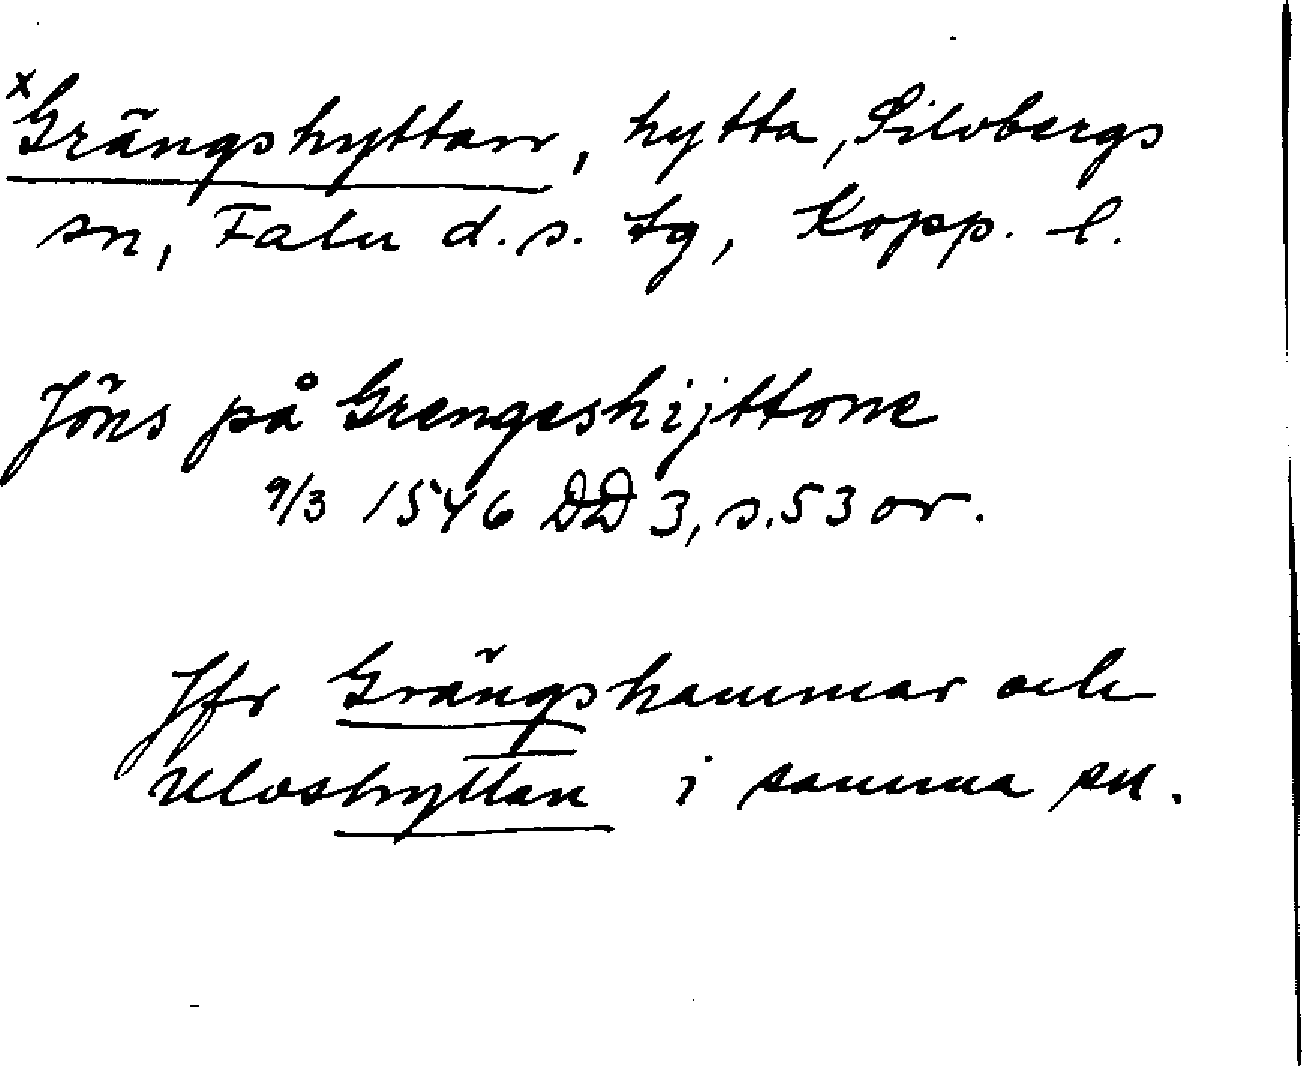 x Grängshyttan, hytta, Silvbergs
sn, Falu d.s. tg, Kopp. l.
Jöns på Grengeshijttone
9/3 1546 DD 3, s. 53 or.
Jfr Grängshammar och
Uloshyttan i samma sn.